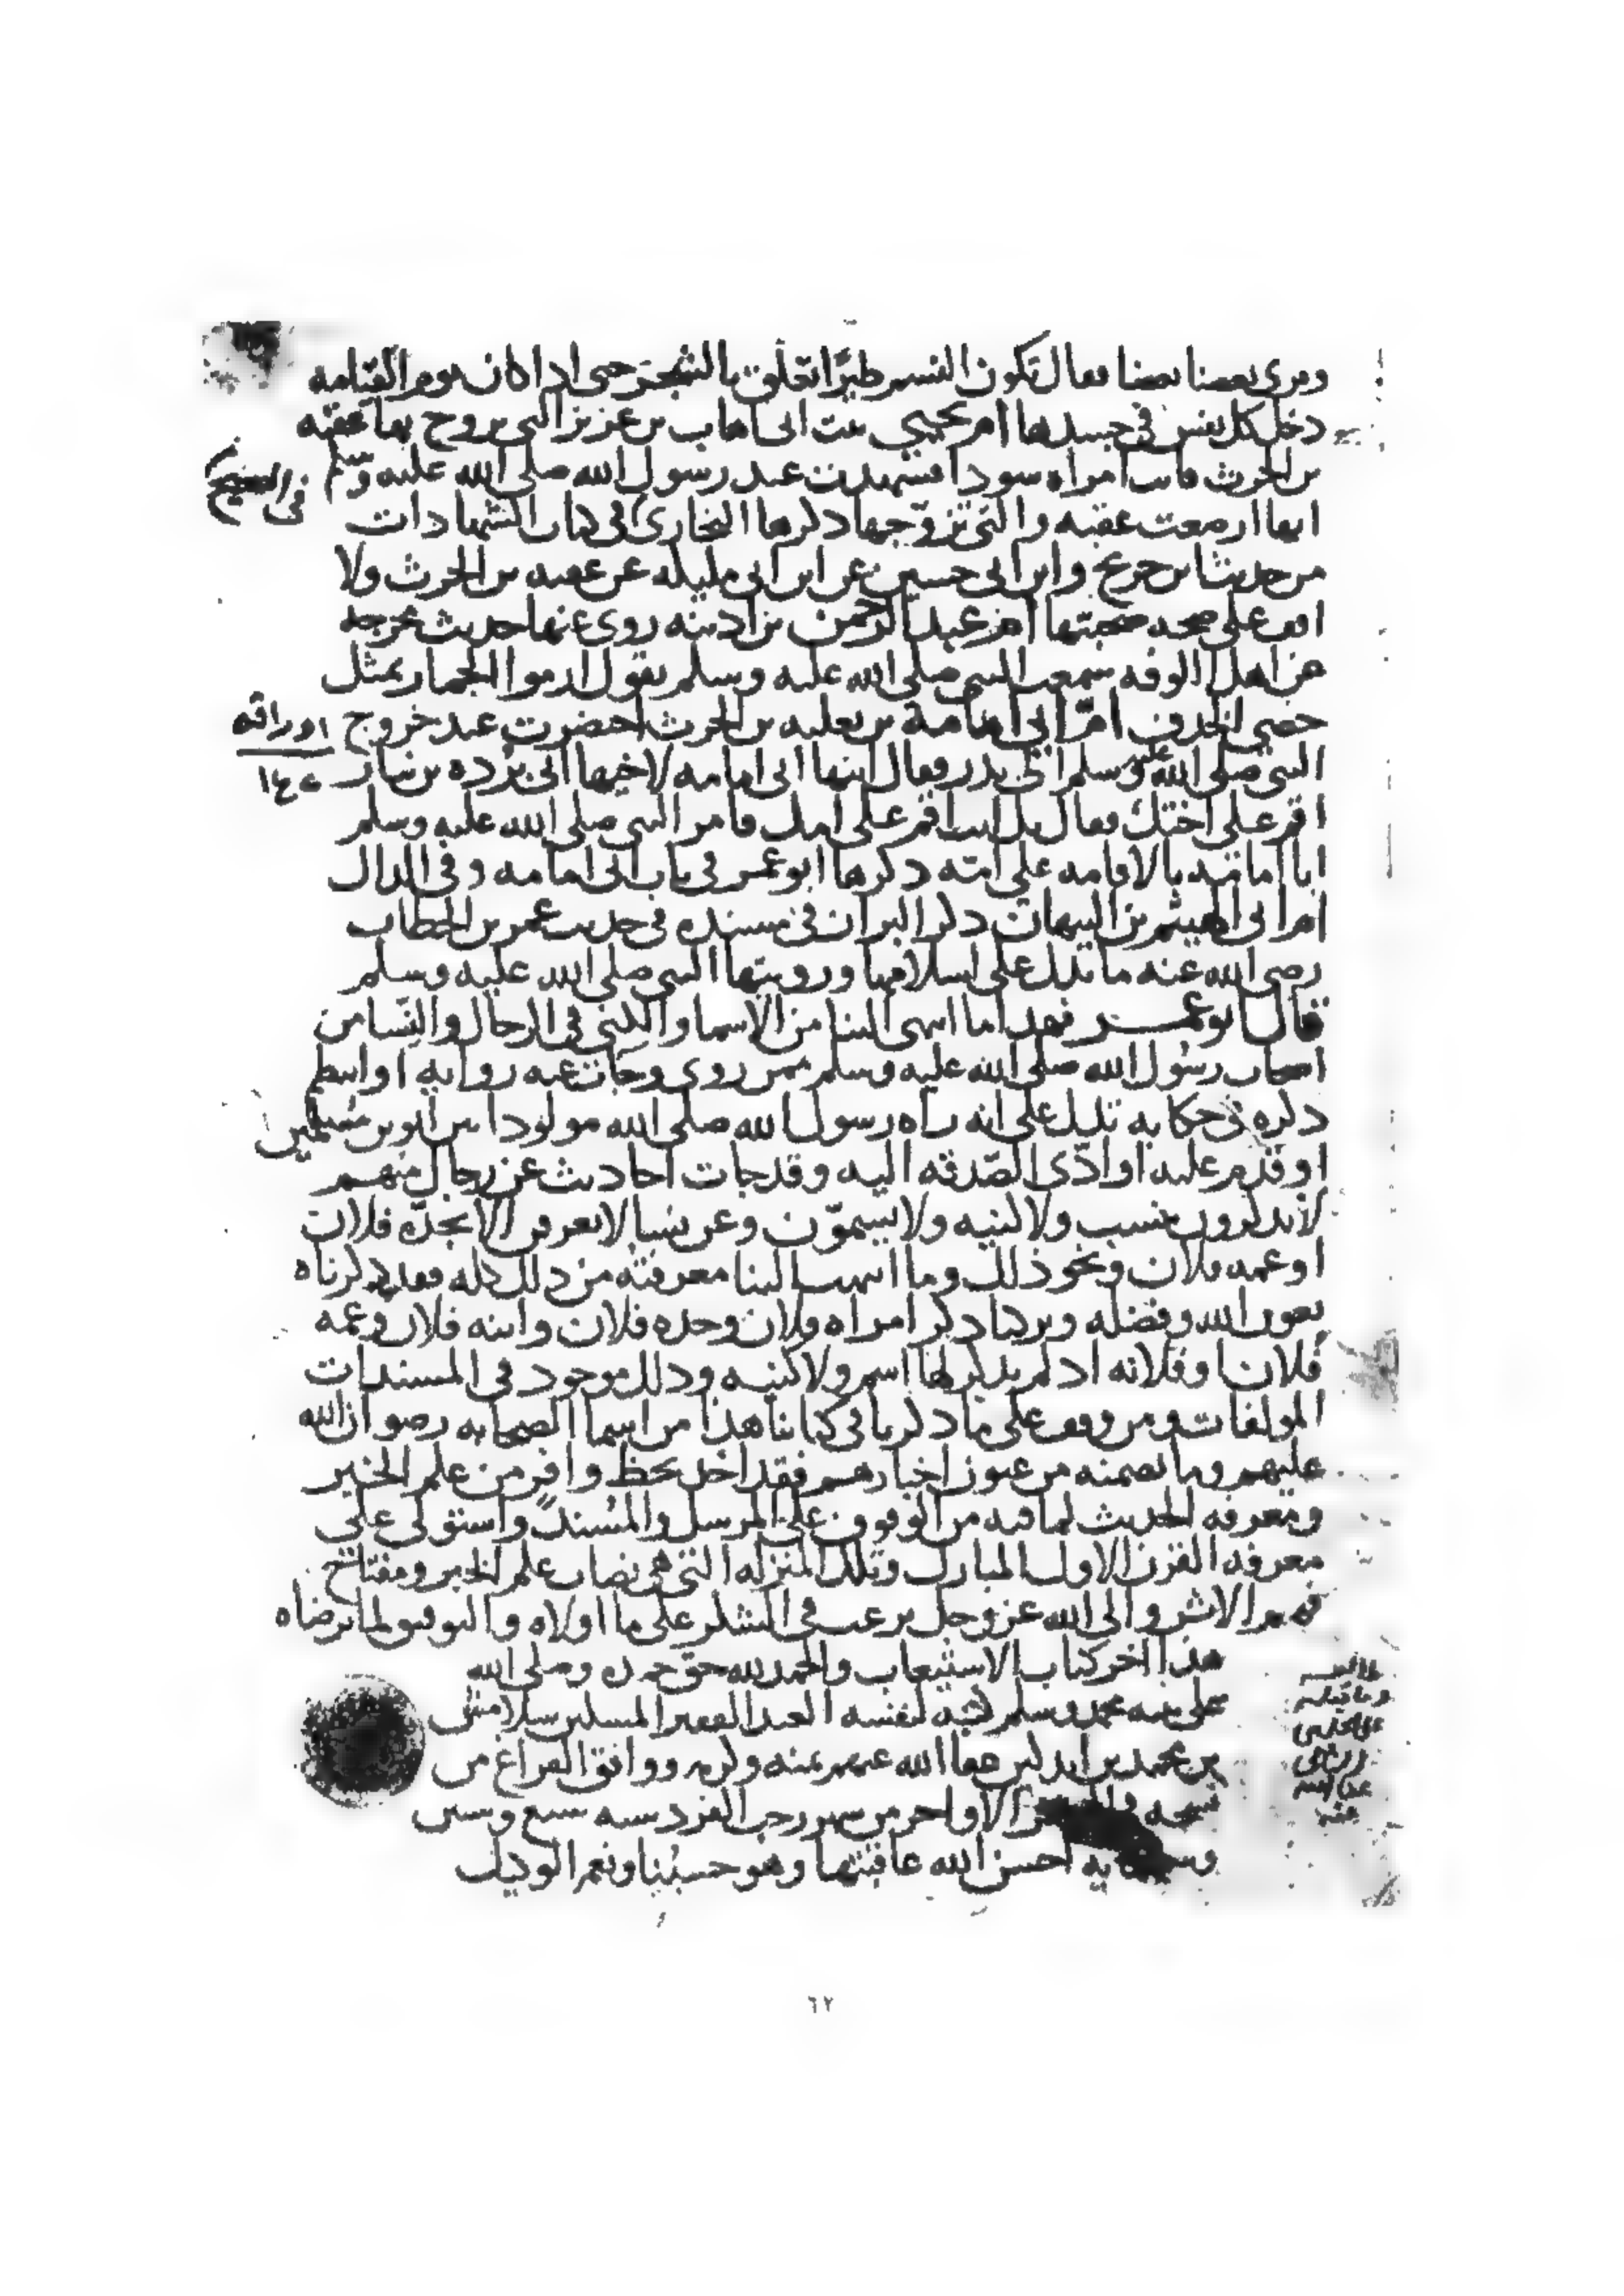 ويرى بعضنا بعضا فقال تكون النسم طيرا تعلق بالشجر حتى اذا كان يوم القيامه
دخل كل نفس في جسدها ام يحيى بنت ابي اهاب بن عزيز التي تزوج بها عقبه
بن الحرث فاتت امراه سودا فشهدت عند رسول الله صلى الله عليه وسلم
في الصحيح
انها ارضعت عقبه والتي تزوجها ذكرها البخاري في كتاب الشهادات
من حديث ابن جريج وابن ابي حسين عن ابن ابي مليكه عن عقبه بن الحرث ولا
اقف على صحه صحبتها ام عبد الرحمن بن اذينه روى عنها حديث مخرجه
عن اهل الكوفه سمعت النبي صلى الله عليه وسلم يقول ارموا الجمار بمثل
حصى الخذف ام ابي امامة بن ثعلبه بن الحرث احضرت عند خروج
اوراقه
١٤٥
النبي صلى الله عليه وسلم الى بدر فقال ابنها ابي امامه لاخيها ابي برده بن نيار
اقم على اختك فقال بل انت اقم على امك فامر النبي صلى الله عليه وسلم
ابا امامة بالاقامه على امه ذكرها ابو عمر في باب ابي امامه وفي الدال
ام ابي الهيثم بن التيهان ذكر البزار في مسنده في حديث عمر بن الخطاب
رضي الله عنه ما تدل على اسلامها ورويتها النبي صلى الله عليه وسلم
قال ابو عمر فهذا ما انتهى الينا من الاسما والكنى في الرجال والنسا من
اصحاب رسول الله صلى الله عليه وسلم ممن روى وجات عنه روايه او انتظم
ذكره في حكايه تدل على انه راه رسول الله صلى الله مولودا بين ابوين مسلمين
او قدم عليه او ادى الصدقه اليه وقد جات احاديث عن رجال منهم
لا يذكرون بنسب ولا كنيه ولا يسمون وعن نسا لا تعرف الا بجده فلان
او عمه فلان ونحو ذلك وما انتهت الينا معرفته من ذلك كله فقد ذكرناه
بعون الله وفضله وتركنا ذكر امراه فلان وجده فلان وابنه فلان وعمه
فلان وفلانه اذ لم يذكر لها اسم ولا كنيه وذلك موجود في المسندات
المولفات ومن وقف على ما ذكرنا في كتابنا هذا من اسما الصحابه رضوان الله
عليهم وما تضمنه من عيون اخبارهم فقد اخذ بحظ وافر من علم الخبر
ومعرفه الحديث لما فيه من الوقوف على المرسل والمسند واستولى على
معرفه القرن الاول المبارك وتلك المنزله التي هي نصاب علم الخبر ومفتاح
فهم الاثر والى الله عز وجل نرغب في الشكر على ما اولاه والتوفيق لما يرضاه
هذا اخر كتاب الاستيعاب والحمد لله حق حمده وصلى الله
على نبيه محمد وسلم كتبه لنفسه العبد الفقير
بن محمد بن عفا الله عنهم بمنه وكرمه ووافق الفراغ من
نسخه الاواخر من شهر رجب الفرد سنه سبع وستين
احسن الله عاقبتها وهو حسبنا ونعم الوكيل
٦٢